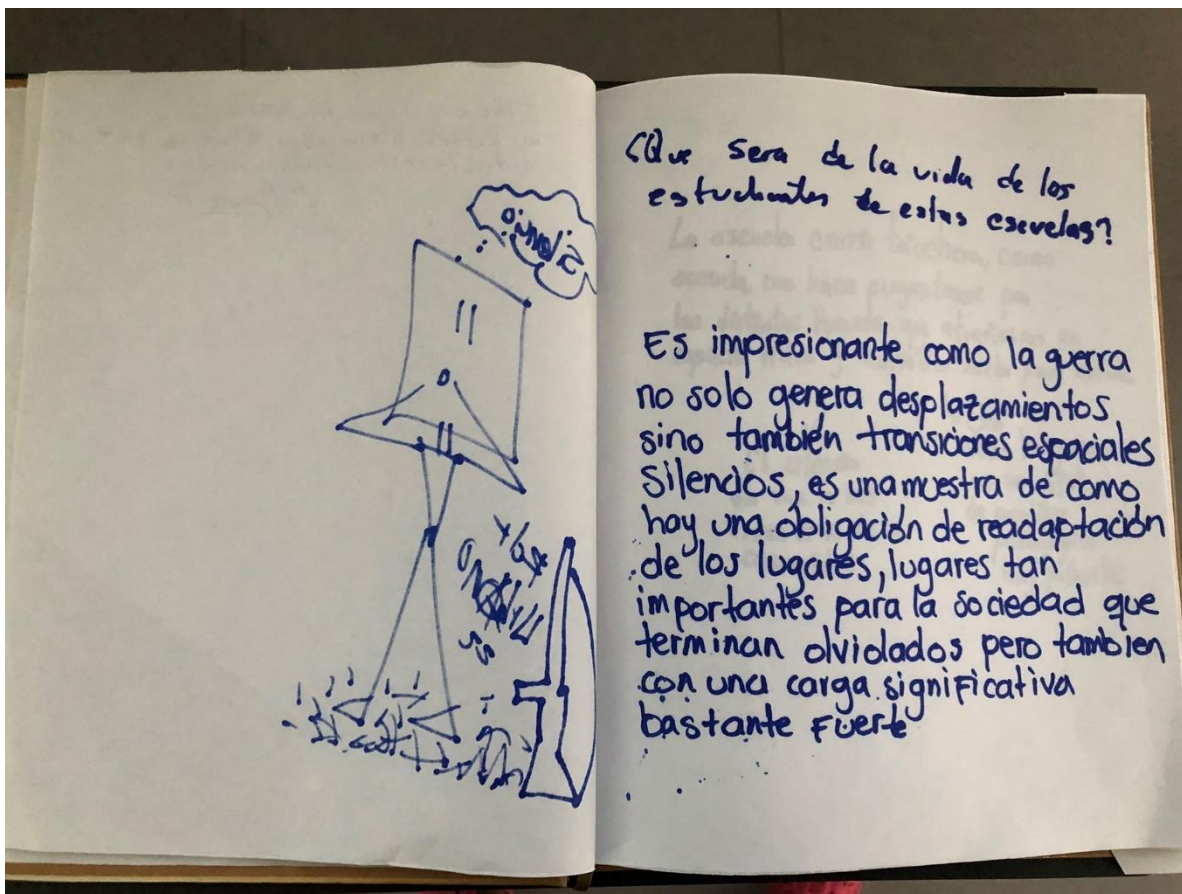 ¿Que sera de la vida de los
estudiantes de estas escuelas?
Es impresionante como la guerra
no solo genera desplazamientos
sino también transiciones espaciales
silencios, es una muestra de como
hay una obligación de readaptación
de los lugares, lugares tan
importantes para la sociedad que
terminan olvidados pero tambien
con una carga significativa
bastante fuerte